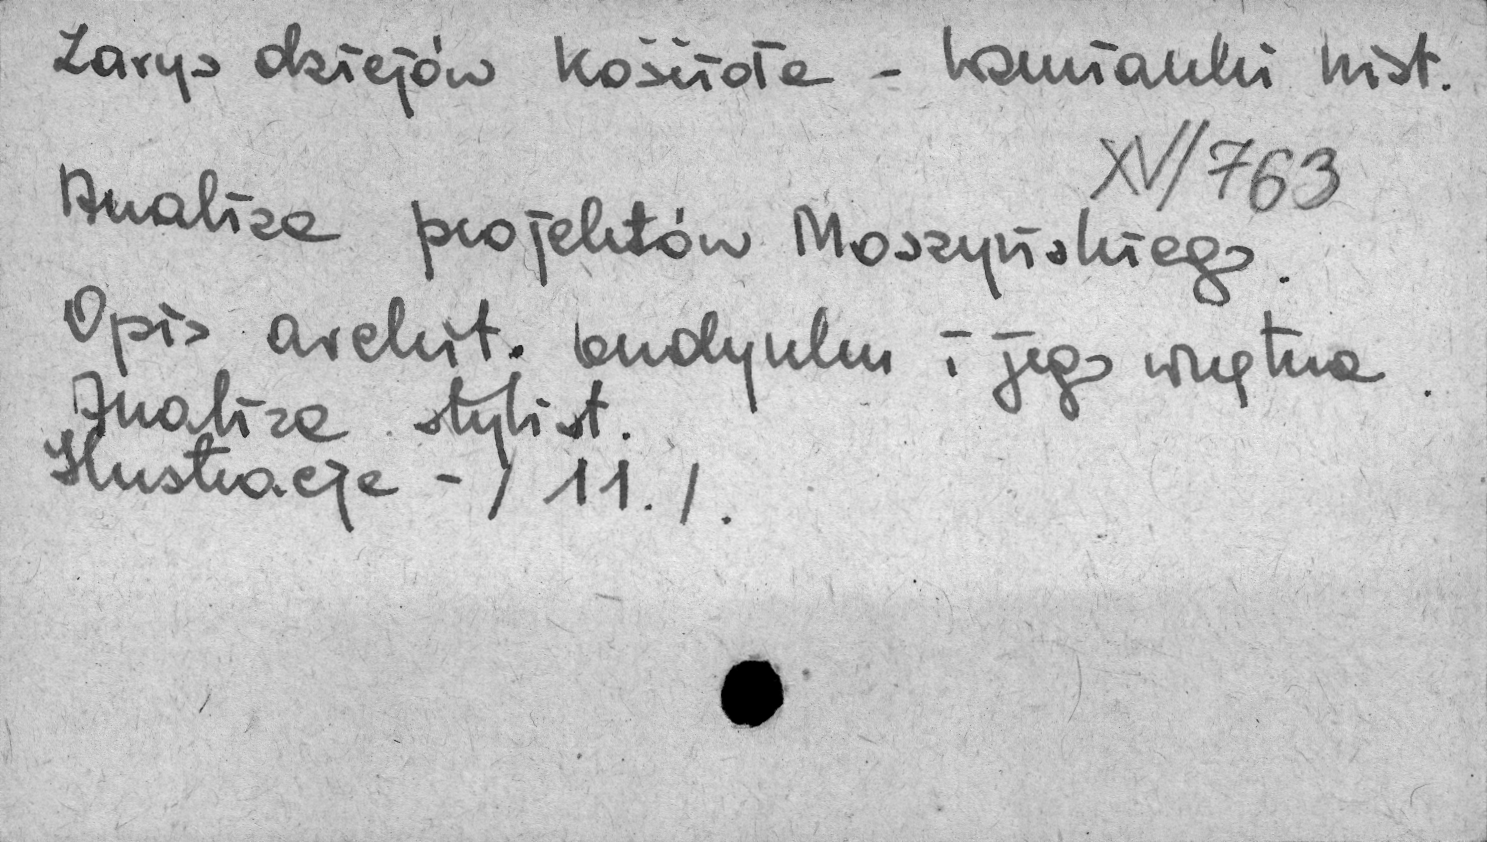 Zarys dziejów kościoła - wzmianki hist.
XV/763
Analiza projektów Moszyńskiego.
Opis archit. budynku i jego wnętrza.
Analiza stylist.
Ilustracje - / 11. /.